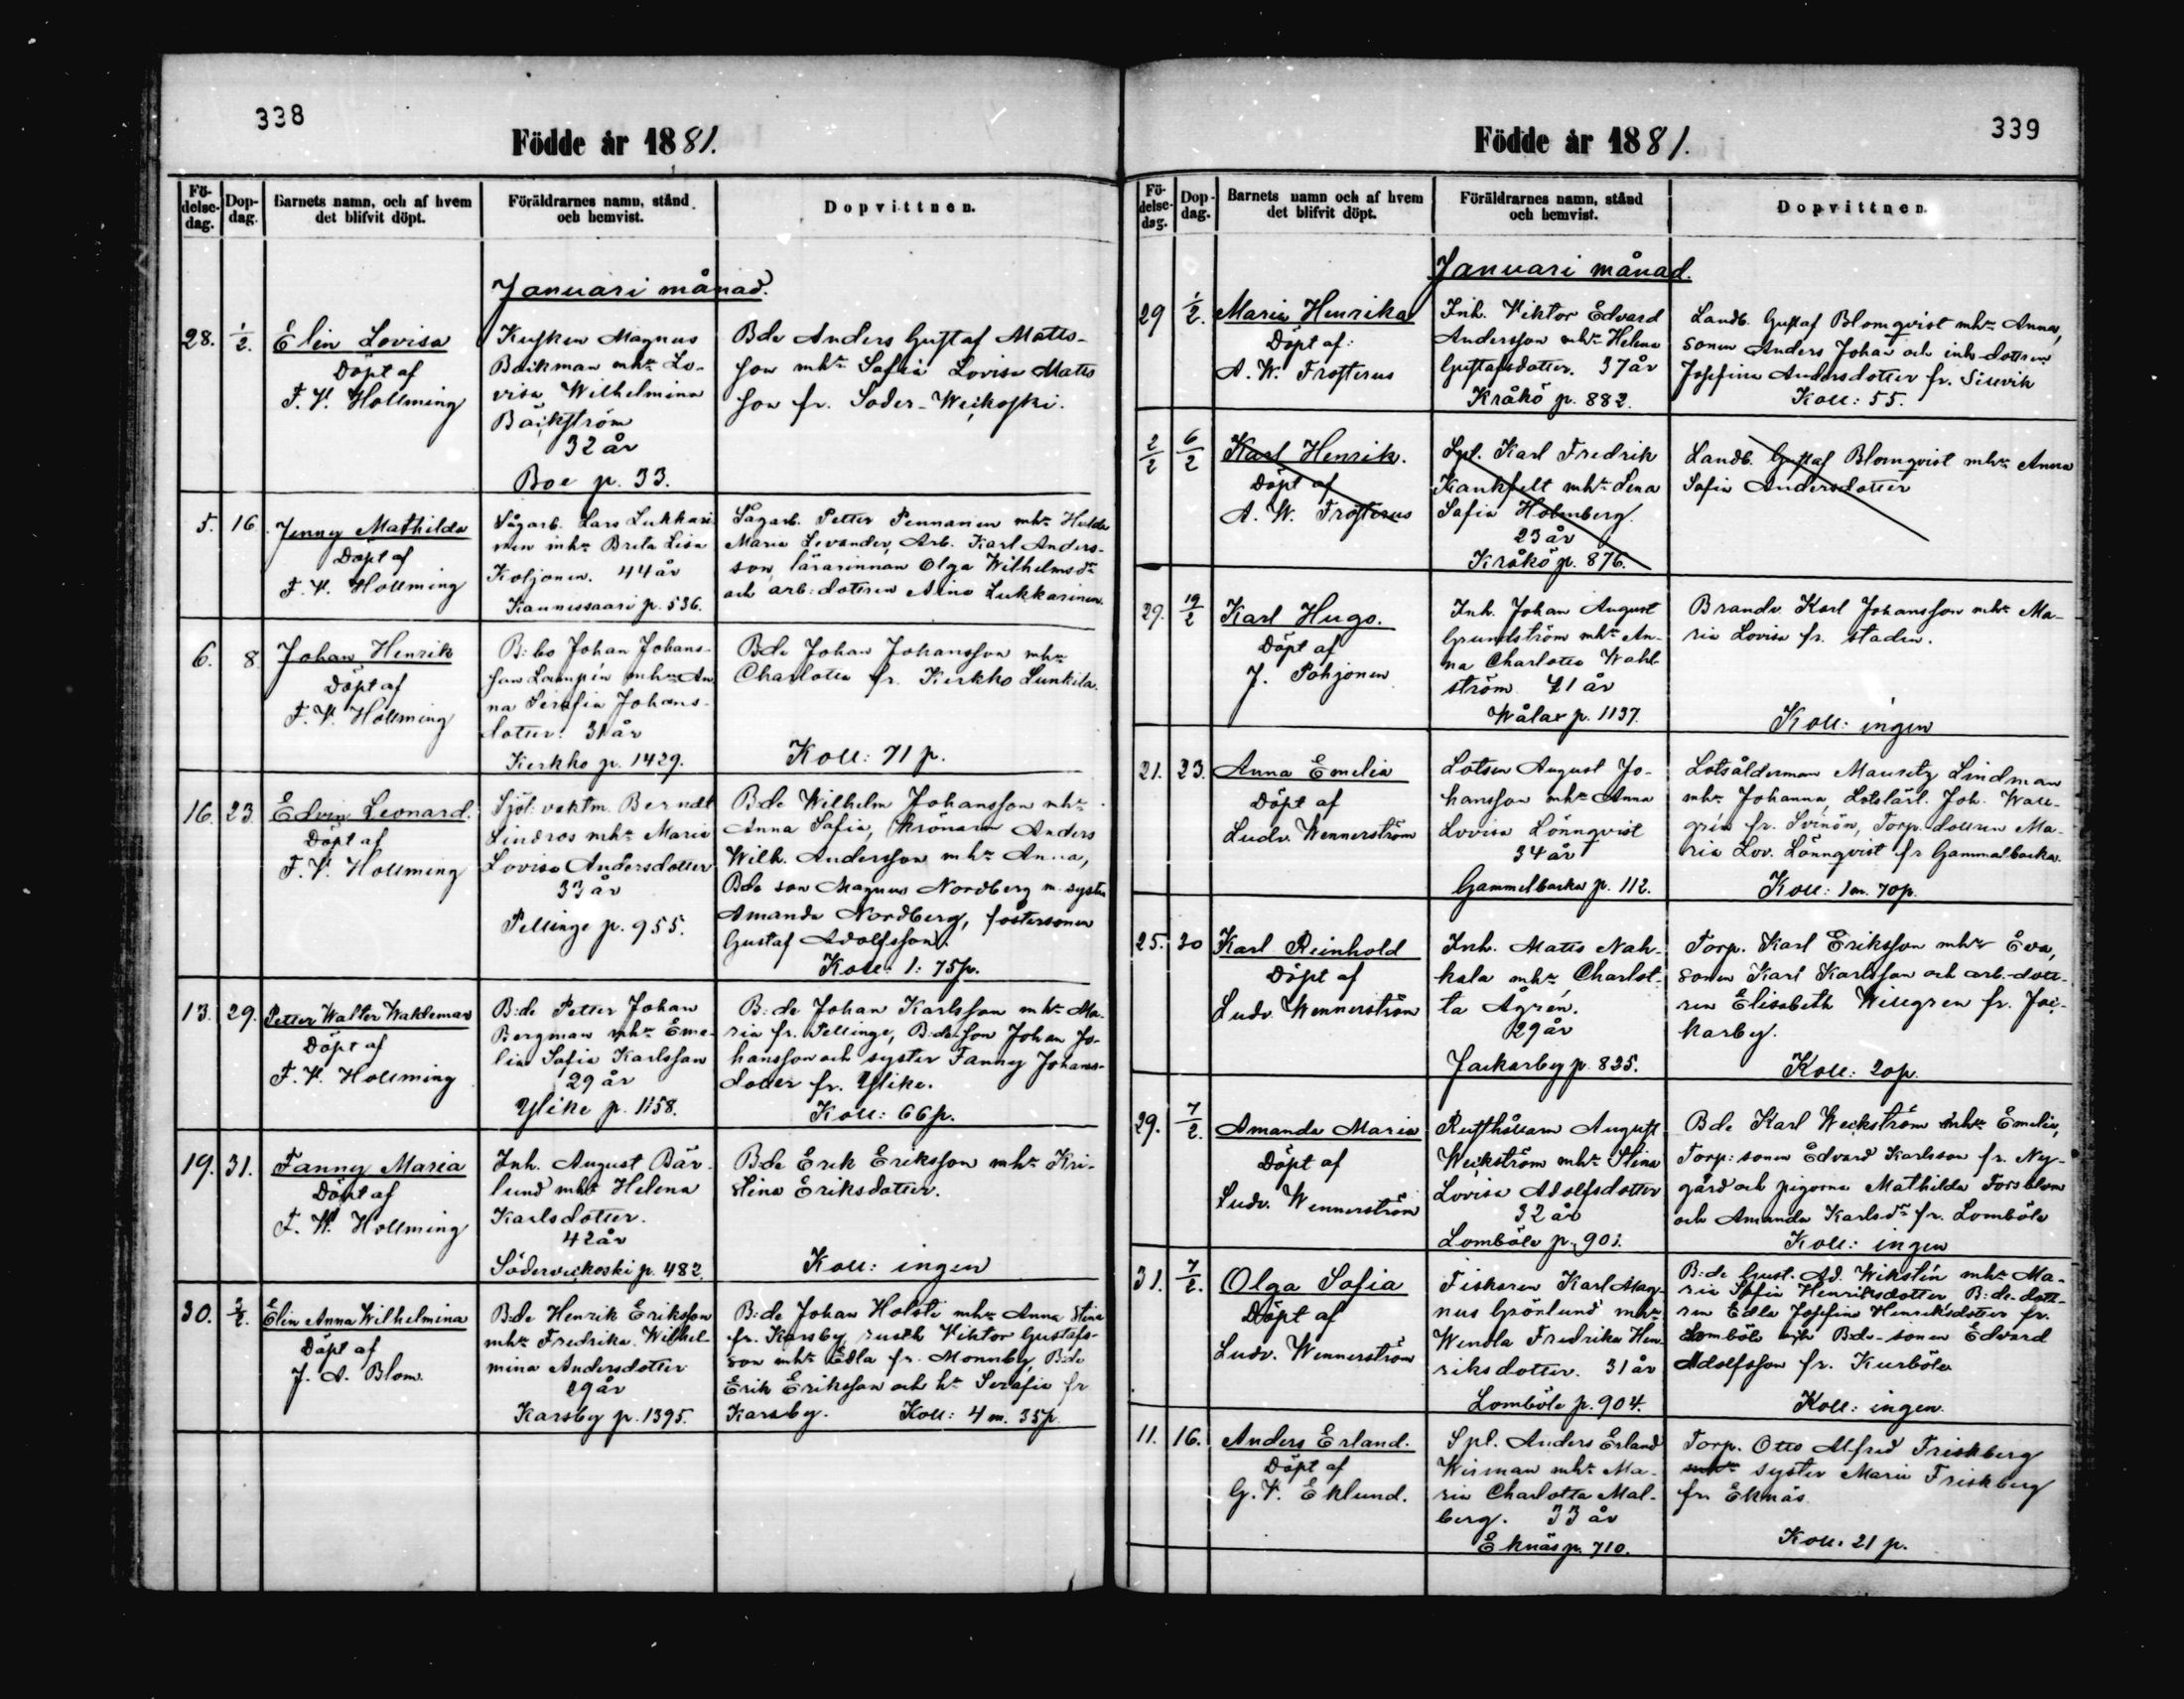 338
Födde år 1881.
Fö-
delse-
dag.
Dop-
dag.
Barnets namn, och af hvem
det blifvit döpt.
Föräldrarnes namn, stånd
och hemvist.
Dopvittnen.
Januari månad.
28.
1/2.
Elin Lovisa
Döpt af
F. V. Hollming
Kusken Magnus
Bäckman mhr Lo-
visa Wilhelmina
Bäckström
32 år
Boe p. 33.
Bde Anders Gustaf Matts-
son mhr Sofia Lovisa Matts
son fr. Söder-Weckoski.
5.
16.
Jenny Mathilda
Döpt af
F. V. Hollming
Sågarb. Lars Lukkari
nen mhr Brita Lisa
Koljonen. 44 år
Kaunissaari p. 536.
Sågarb. Petter Pennanen mhr Hulda
Maria Levander, Arb. Karl Anders-
son, lärarinnan Olga Wilhelmsdr
och arb: dottren Aino Lukkarinen.
6.
8.
Johan Henrik
Döpt af
F. V. Hollming
B:bo Johan Johans-
son Lampén mhr An
na Serafia Johans-
dotter. 31 år
Kerkko p. 1429.
Bde Johan Johansson mhr
Charlotta fr. Kerkko Lunkila.
Koll: 71 p.
16.
23.
Edvin Leonard.
Döpt af
F. V. Hollming
Sjöl: vaktm. Berndt
Lindros mhr Maria
Lovisa Andersdotter
33 år
Pellinge p. 955.
Bde Wilhelm Johansson mhr
Anna Sofia, krönare Anders
Wilh. Andersson mhr Anna,
Bde son Magnus Nordberg m. syster
Amanda Nordberg, fostersonen
Gustaf Adolfsson.
Koll: 1: 75 p.
13.
29.
Petter Walter Waldemar
Döpt af
F. V. Hollming
B:de Petter Johan
Bergman mhr Eme-
lia Sofia Karlsson
29 år
Ylike p. 1158.
B:de Johan Karlsson mhr Ma-
ria fr. Pellinge, B:de son Johan Jo-
hansson och syster Fanny Johans-
dotter fr. Ylike.
Koll: 66 p.
19.
31.
Fanny Maria
Döpt af
F. V. Hollming
Inh. August Bär-
lund mhr Helena
Karlsdotter.
42 år
Söderveckoski p. 482.
Bde Erik Eriksson mhr Kri-
stina Eriksdotter.
Koll: ingen
30.
2/2.
Elin Anna Wilhelmina
Döpt af
J. A. Blom.
B:de Henrik Eriksson
mhr Fredrika Wilhel-
mina Andersdotter
29 år
Karsby p. 1395.
B:de Johan Holsti mhr Anna Stina
fr. Karsby, rusth Viktor Gustafs-
son mhr Edla fr. Monnby, B:de
Erik Eriksson och hr Serafia fr
Karsby. Koll: 4 m. 35 p
339
Födde år 1881.
Fö-
delse-
dag.
Dop-
dag.
Barnets namn och af hvem
det blifvit döpt.
Föräldrarnes namn, stånd
och hemvist.
Dopvittnen.
Januari månad.
29
1/2.
Maria Henrika
Döpt af:
A. W. Frosterus
Inh. Viktor Edvard
Andersson mhr Helena
Gustafsdotter. 37 år
Kråkö p. 882.
Landb. Gustaf Blomqvist mhr Anna,
sonen Anders Johan och inh-dottren
Josefina Andersdotter fr. Sillvik
Koll: 55.
2/2
6/2
Karl Henrik.
Döpt af
A. W. Frosterus
Spl. Karl Fredrik
Kankfelt mhr Lena
Sofia Holmberg.
23 år
Kråkö p. 876.
Landb. Gustaf Blomqvist mhr Anna
Sofia Andersdotter
29.
19/2
Karl Hugo.
Döpt af
J. Pohjonen
Inh. Johan August
Grundström mhr An-
na Charlotta Wahl-
ström 41 år
Wålax p. 1137.
Brandv. Karl Johansson mhr Ma-
ria Lovisa fr. staden.
Koll: ingen
21.
23.
Anna Emelia
Döpt af
Ludv. Wennerström
Lotsen August Jo-
hansson mhr Anna
Lovisa Lönnqvist
34 år
Gammelbacka p. 112.
Lotsålderman Mauritz Lindman
mhr Johanna, Lotslärl. Joh. Wall-
grén fr. Svinön, Torp. dottren Ma-
ria Lov. Lönnqvist fr Gammalbacka.
Koll: 1 m. 70 p.
25.
30
Karl Reinhold
Döpt af
Ludv. Wennerström
Inh. Matts Nah-
kala mhr Charlot-
ta Ågrén.
29 år
Jackarby p. 835.
Torp. Karl Eriksson mhr Eva,
sonen Karl Karlsson och arb-dott-
ren Elisabeth Willgren fr. Jac-
karby.
Koll: 20 p.
29.
7/2.
Amanda Maria
Döpt af
Ludv. Wennerström
Rusthållaren August
Weckström mhr Stina
Lovisa Adolfsdotter
32 år
Lomböle p. 901.
Bde Karl Weckström mhr Emelia,
Torp: sonen Edvard Karlsson fr. Ny-
gård och pigorna Mathilda Forsblom
och Amanda Karlsdr fr. Lomböle
Koll: ingen
31.
7/2.
Olga Sofia
Döpt af
Ludv. Wennerström
Fiskaren Karl Mag-
nus Grönlund mhr
Wendla Fredrika Hen-
riksdotter. 31 år
Lomböle p. 904.
B:de Gust. Ad. Wikstén mhr Ma-
ria Sofia Henriksdotter B:de-dott-
ren Edla Josefina Henriksdotter fr.
Lomböle och Bde-sonen Edvard
Adolfsson fr. Kurböle
Koll: ingen.
11.
16.
Anders Erland.
Döpt af
G. V. Eklund.
Spl. Anders Erland
Wirman mhr Ma-
ria Charlotta Mal-
berg. 33 år
Eknäs p. 710.
Torp. Otto Alfred Friskberg
mhr syster Maria Friskberg
fr. Eknäs.
Koll. 21 p.